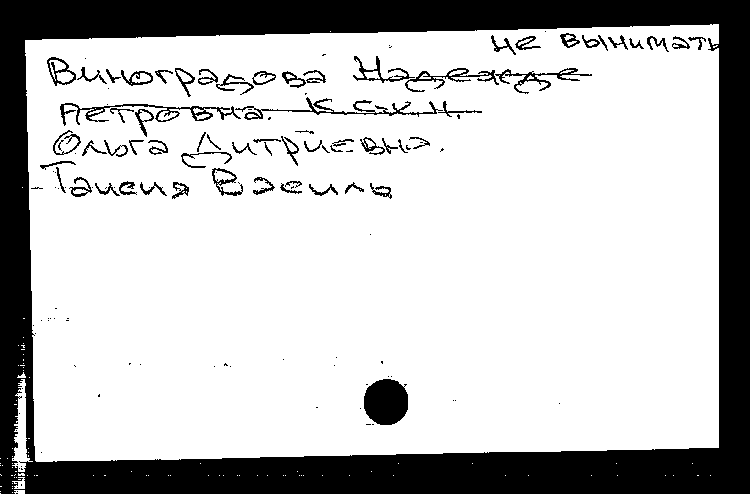 не вынимать
Виноградова Надежде
Петровна. к.с.х.н.
Ольга Дитриевна.
Таисия Василь